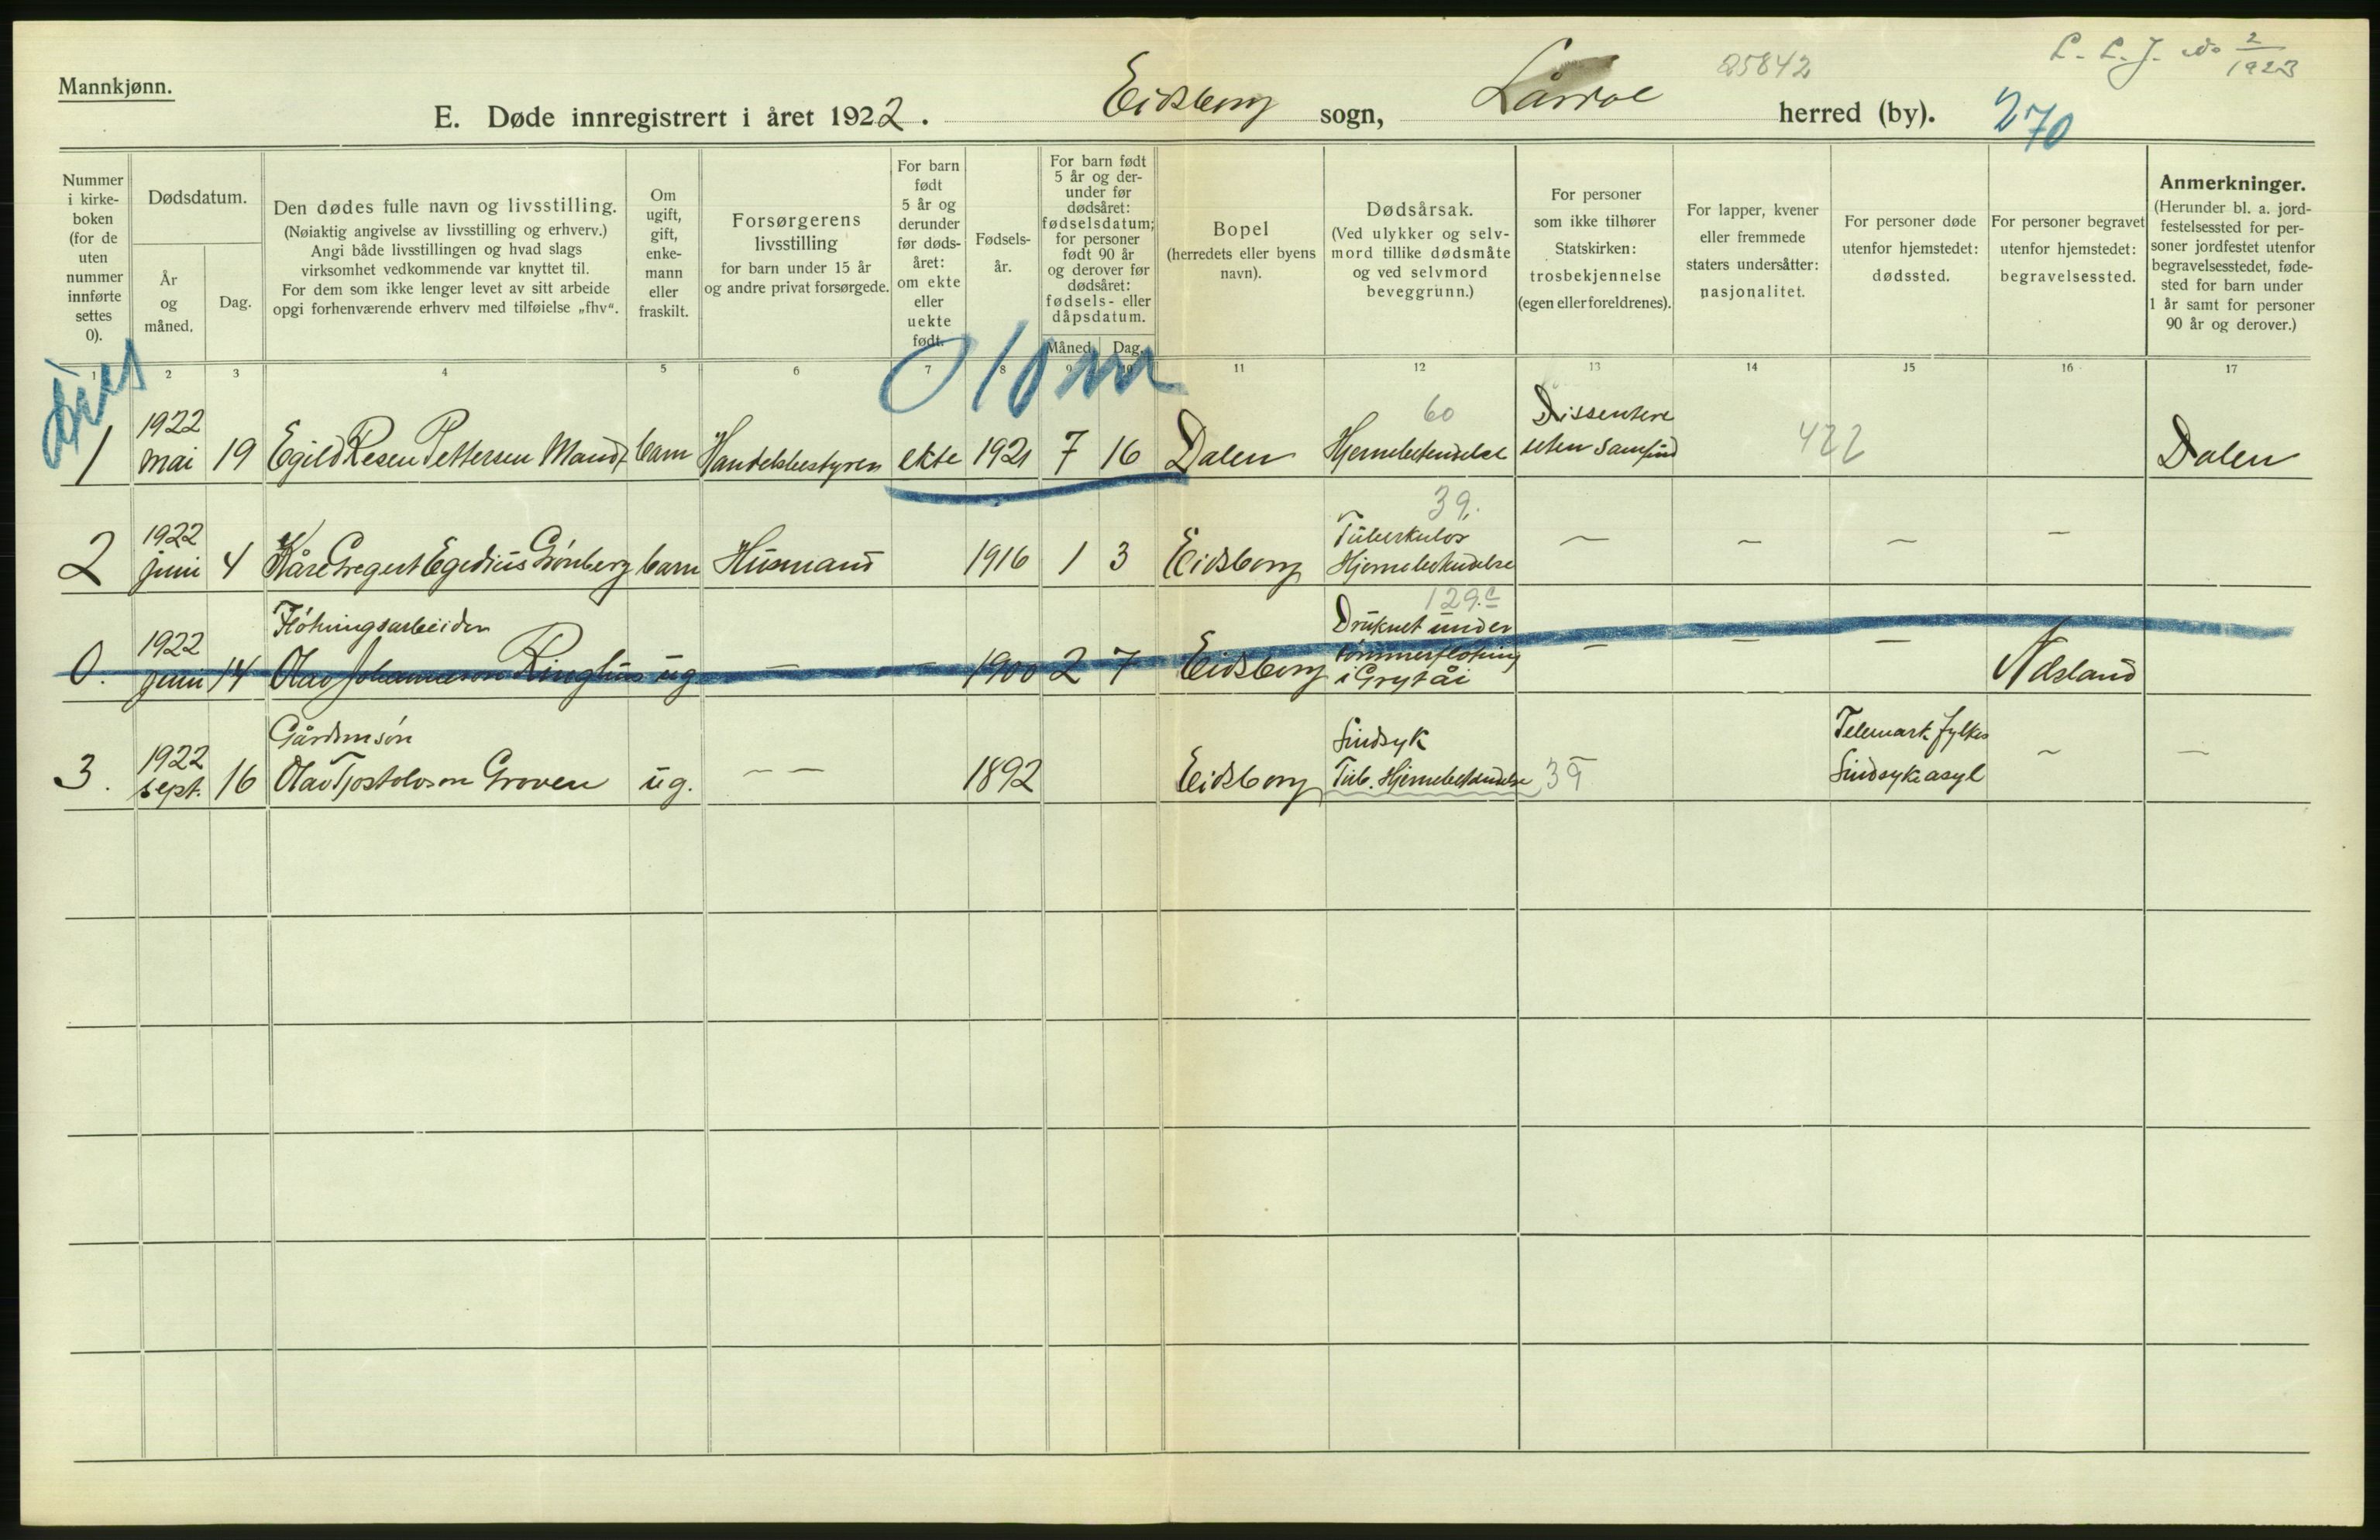 Mannkjønn.
E. Døde innregistrert i året 1922. Eidsborg sogn, Lårdal herred (by).
25842
270
L. L. J. 2/1923
Nummer i kirke-boken (for de uten nummer innførte settes 0).
Dødsdatum.
År og måned.
Dag.
Den dødes fulle navn og livsstilling.
(Nøiaktig angivelse av livsstilling og erhverv.)
Angi både livsstillingen og hvad slags
virksomhet vedkommende var knyttet til.
For dem som ikke lenger levet av sitt arbeide
opgi forhenværende erhverv med tilføielse „fhv“.
Om ugift, gift, enke-mann eller fraskilt.
Forsørgerens livsstilling
for barn under 15 år
og andre privat forsørgede.
For barn født 5 år og derunder før døds-året: om ekte eller uekte født.
Fødsels-år.
For barn født 5 år og der-under før dødsåret: fødselsdatum; for personer født 90 år og derover før dødsåret: fødsels- eller dåpsdatum.
Måned.
Dag.
Bopel
(herredets eller byens navn).
Dødsårsak.
(Ved ulykker og selv-mord tillike dødsmåte og ved selvmord beveggrunn.)
For personer som ikke tilhører Statskirken: trosbekjennelse (egen eller foreldrenes).
For lapper, kvener eller fremmede staters undersåtter: nasjonalitet.
For personer døde utenfor hjemstedet: dødssted.
For personer begravet utenfor hjemstedet: begravelsessted.
Anmerkninger.
(Herunder bl. a. jord-festelsessted for per-soner jordfestet utenfor begravelsesstedet, føde-sted for barn under 1 år samt for personer 90 år og derover.)
1 2 3 4 5 6 7 8 9 10 11 12 13 14 15 16 17
0 10 m
1 1922 mai 19 Egild Resen Pettersen barn Handelsbestyrer ekte 1921 7 16 Dalen 60 Hjernebetendelse Dissentere uten samfund 422 Dalen
2 1922 juni 4 Kåre Egedius Grönberg barn Husmand 1916 1 3 Eidsborg 39. Tuberkulos Hjernebetendelse — — — —
0. 1922 juni 14 Flötningsarbeider Olav Johannesson Ringhus ug — — 1900 2 7 Eidsborg 129.c Druknet under tömmerflötning i Grytåi — — — Adsland
3. 1922 sept. 16 Gårdmsön Olav Tjostolvson Groven ug. — — 1892 Eidsborg Sindsyk Tub. Hjernebetendelse 39 Telemark fylkes Sindsykeasyl — —